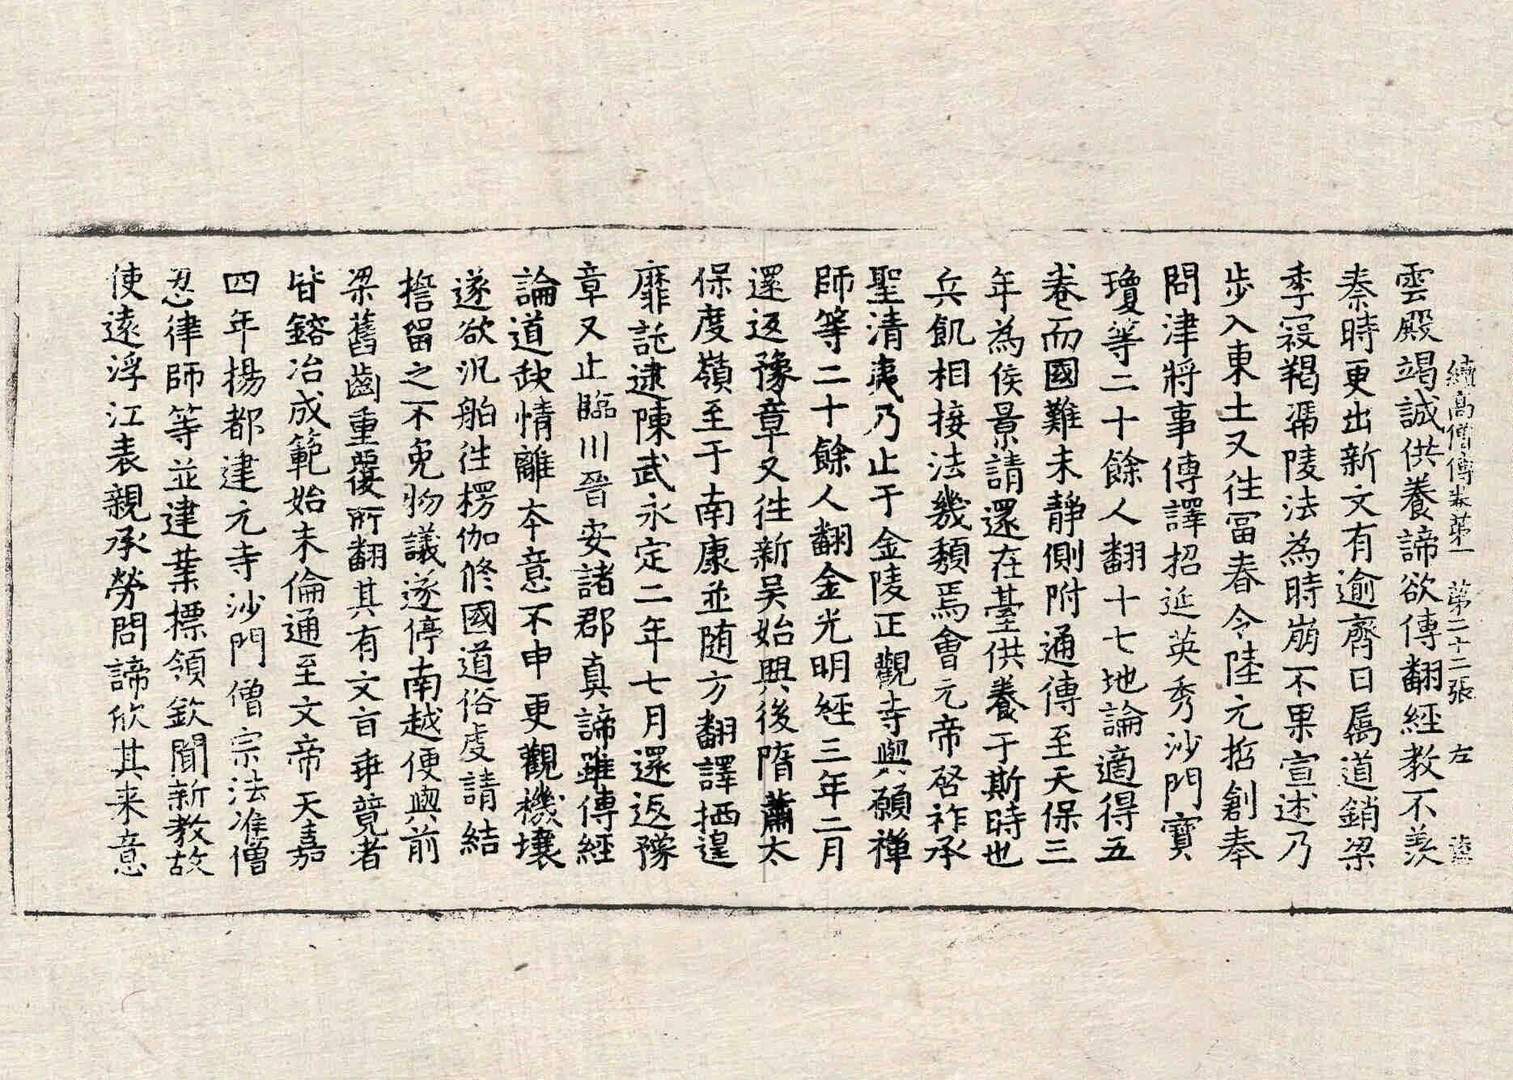 續高僧傳卷第一 第二十二張 左
雲殿竭誠供養諦欲傳翻經教不羨
秦時更出新文有逾齊日属道銷梁
季寇羯馮陵法為時崩不果宣述乃
步入東土又往冨春令陸元哲創奉
問津將事傳譯招延英秀沙門寶
瓊等二十餘人翻十七地論適得五
卷而國難未静側附通傳至天保三
年為侯景請還在臺供養于斯時也
兵飢相接法幾頽焉會元帝啓祚承
聖清夷乃止于金陵正觀寺與願禅
師等二十餘人翻金光明經三年二月
還返豫章又往新吴始興後隋蕭太
保度嶺至于南康並随方翻譯栖遑
靡託逮陳武永定二年七月還返豫
章又止臨川晉安諸郡真諦雖傳經
論道缺情離本意不申更觀機壤
遂欲汎舶往楞伽修國道俗虔請結
擔留之不免物議遂停南越便與前
梁舊齒重覆所翻其有文旨乖競者
皆鎔冶成範始末倫通至文帝天嘉
四年揚都建元寺沙門僧宗法准僧
忍律師等並建業標領欽聞新教故
使遠浮江表親承勞問諦欣其来意